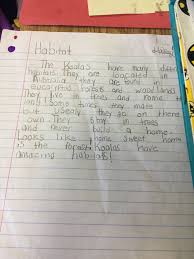 Habitat
The Koalas have many diffe
habitats. They are loocated in
Australia they are found in
eucalyptus forests and woodlands
They live in trees and rome the
land! Some times they make
but usealy they go on there
own. They stay in trees
and never build a home.
Looks like home sweet home
is the forest. Koalas have
amazing habitats!